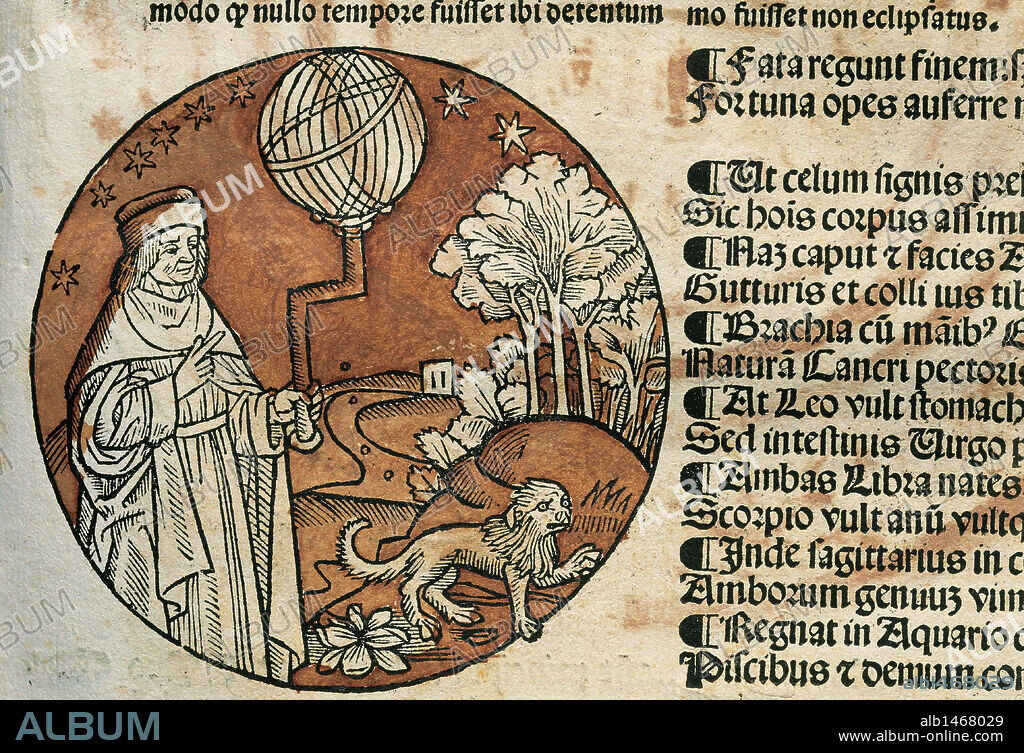 modo qɔ nullo tempore fuiſſet ibi detentum
mo fuiſſet non eclipſatus.
¶ Fata regunt finem: ſ
Fortuna opes auferre
¶ Ut celum ſignis pre
Sic hoīs corpus aſſimu
¶ Naʒ caput ⁊ facies A
Gutturis et colli ius tib
¶ Brachia cū māibꝰ
Naturā Cancri pectoris
¶ At Leo vult ſtomach
Sed inteſtinis Virgo p
¶ Ambas Libra nates
Scorpio vult anū vultq
¶ Inde ſagittarius in c
Amborum genuuʒ vim
¶ Regnat in Aquario
Piſcibus ⁊ demum con
ALBUM
alb1468029
www.album-online.com